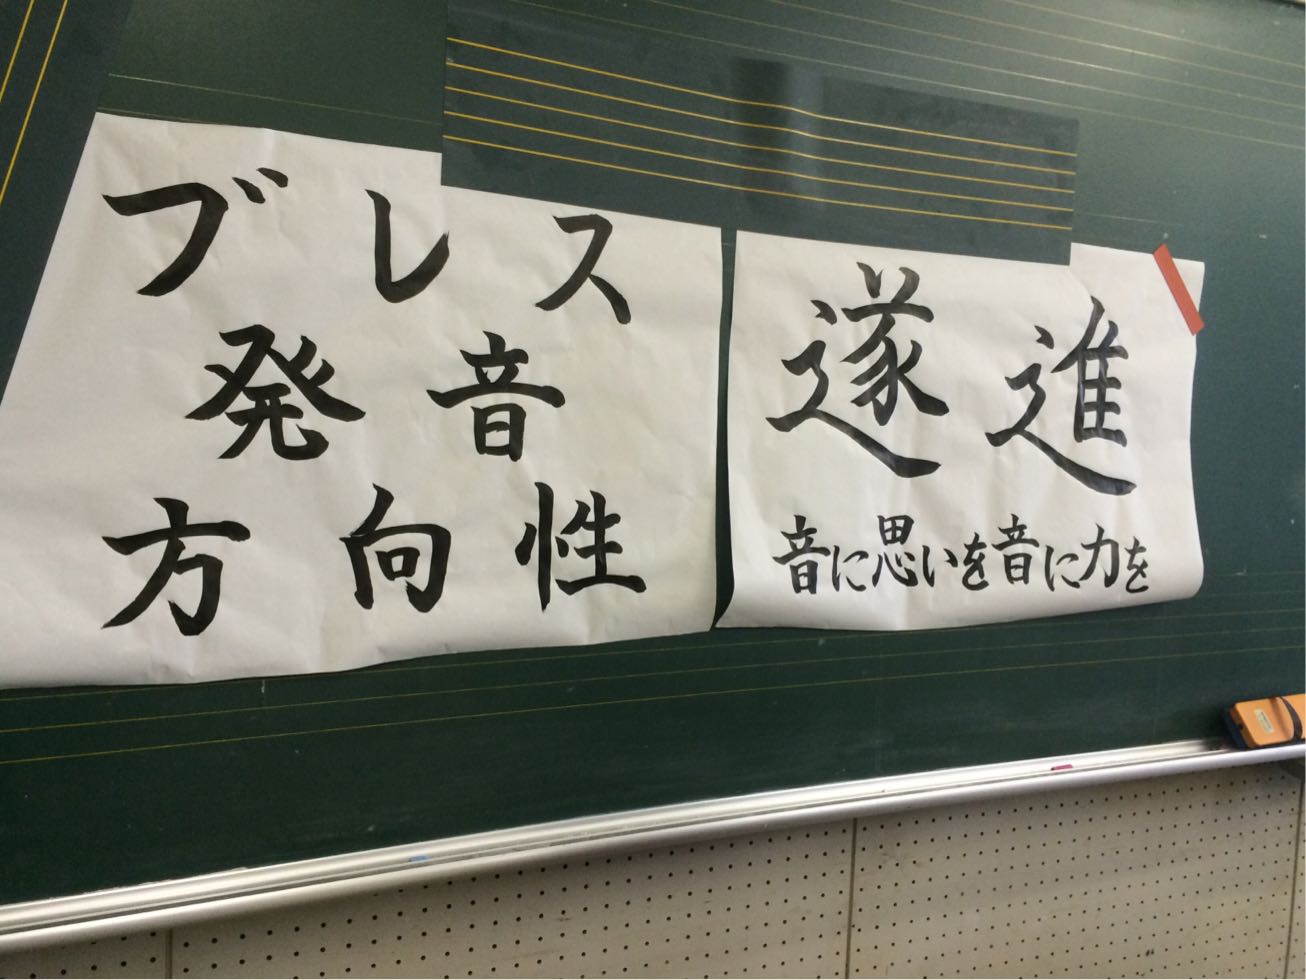 ブレス
発音
方向性
遂進
音に思いを音に力を